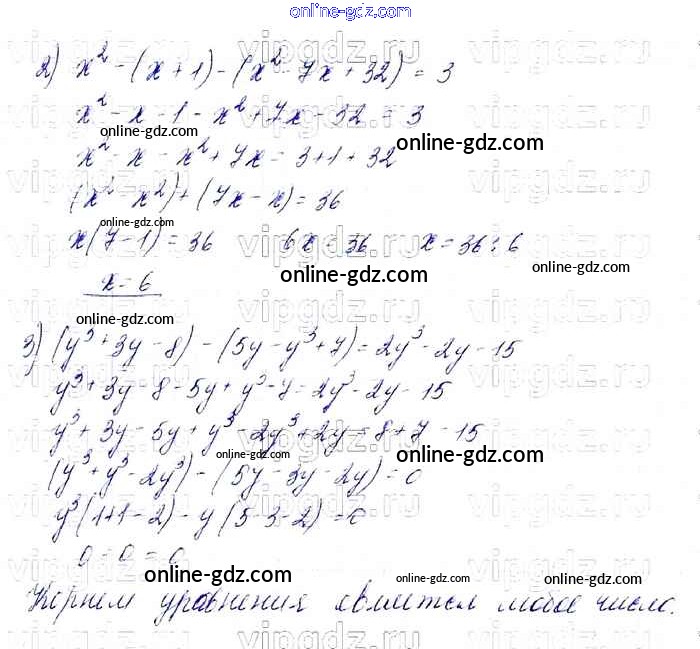 online-gdz.com
2) x² - (x + 1) - (x² - 7x + 32) = 3
x² - x - 1 - x² + 7x - 32 = 3
online-gdz.com
online-gdz.com
x² - x - x² + 7x = 3 + 1 + 32
(x² - x²) + (7x - x) = 36
online-gdz.com
x(7 - 1) = 36 6x = 36 x = 36 : 6
online-gdz.com
online-gdz.com
x = 6
online-gdz.com
3) (y³ + 3y - 8) - (5y - y³ + 7) = 2y³ - 2y - 15
online-gdz.com
y³ + 3y - 8 - 5y + y³ - 7 = 2y³ - 2y - 15
y³ + 3y - 5y + y³ - 2y³ + 2y = 8 + 7 - 15
online-gdz.com
online-gdz.com
(y³ + y³ - 2y³) - (5y - 3y - 2y) = 0
y³(1 + 1 - 2) - y(5 - 3 - 2) = 0
online-gdz.com
0 - 0 = 0
online-gdz.com
online-gdz.com
online-gdz.com
Корнем уравнения является любое число.
vipgdz.ru